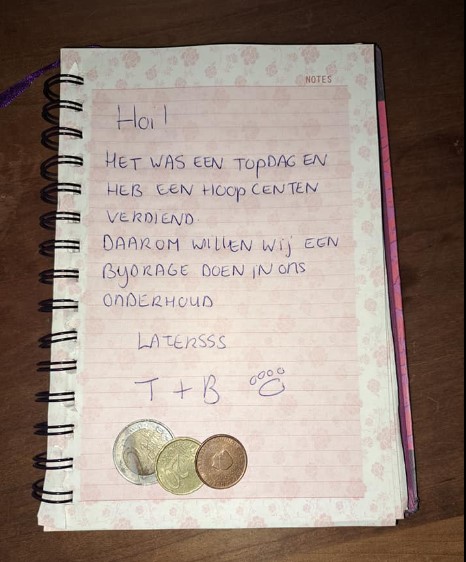 NOTES
Hoi!
HET WAS EEN TOPDAG EN
HEB EEN HOOP CENTEN
VERDIEND.
DAAROM WILLEN WIJ EEN
BYDRAGE DOEN IN ONS
ONDERHOUD
LATERSSS
T + B